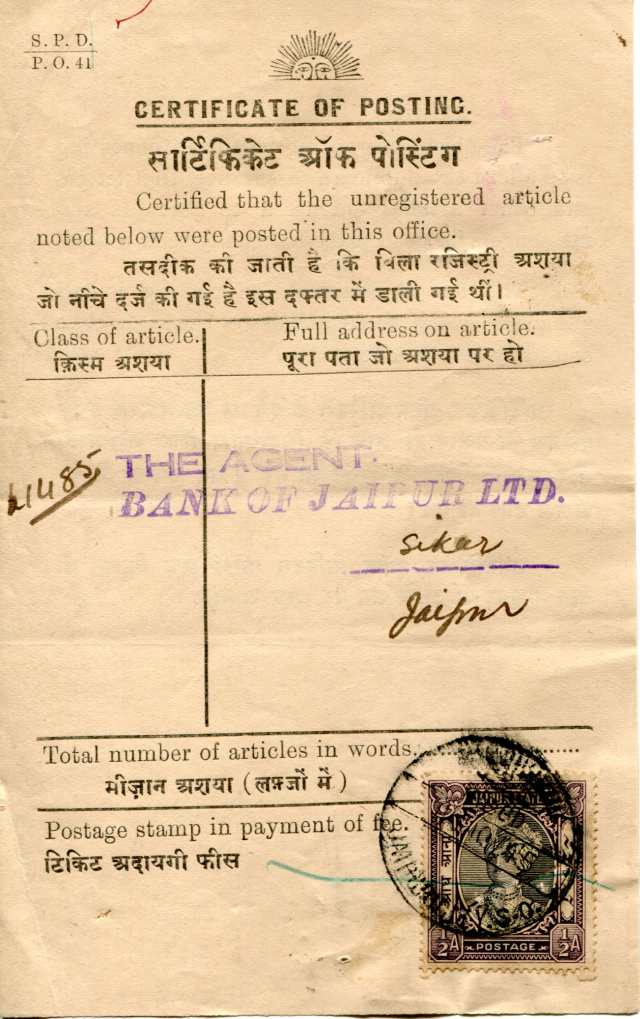 S. P. D.
P. O. 41
CERTIFICATE OF POSTING.
सार्टिफिकेट ऑफ पोस्टिंग
Certified that the unregistered article
noted below were posted in this office.
तसदीक की जाती है कि बिला रजिस्ट्री अशया
जो नीचे दर्ज की गई है इस दफ्तर में डाली गई थीं।
Class of article.
क़िस्म अशया
Full address on article.
पूरा पता जो अशया पर हो
THE AGENT.
BANK OF JAIPUR LTD.
Sikar
Jaipur
Total number of articles in words
मीज़ान अशया (लफ़्जों में)
Postage stamp in payment of fee.
टिकिट अदायगी फीस
आध आना
½A POSTAGE ½A